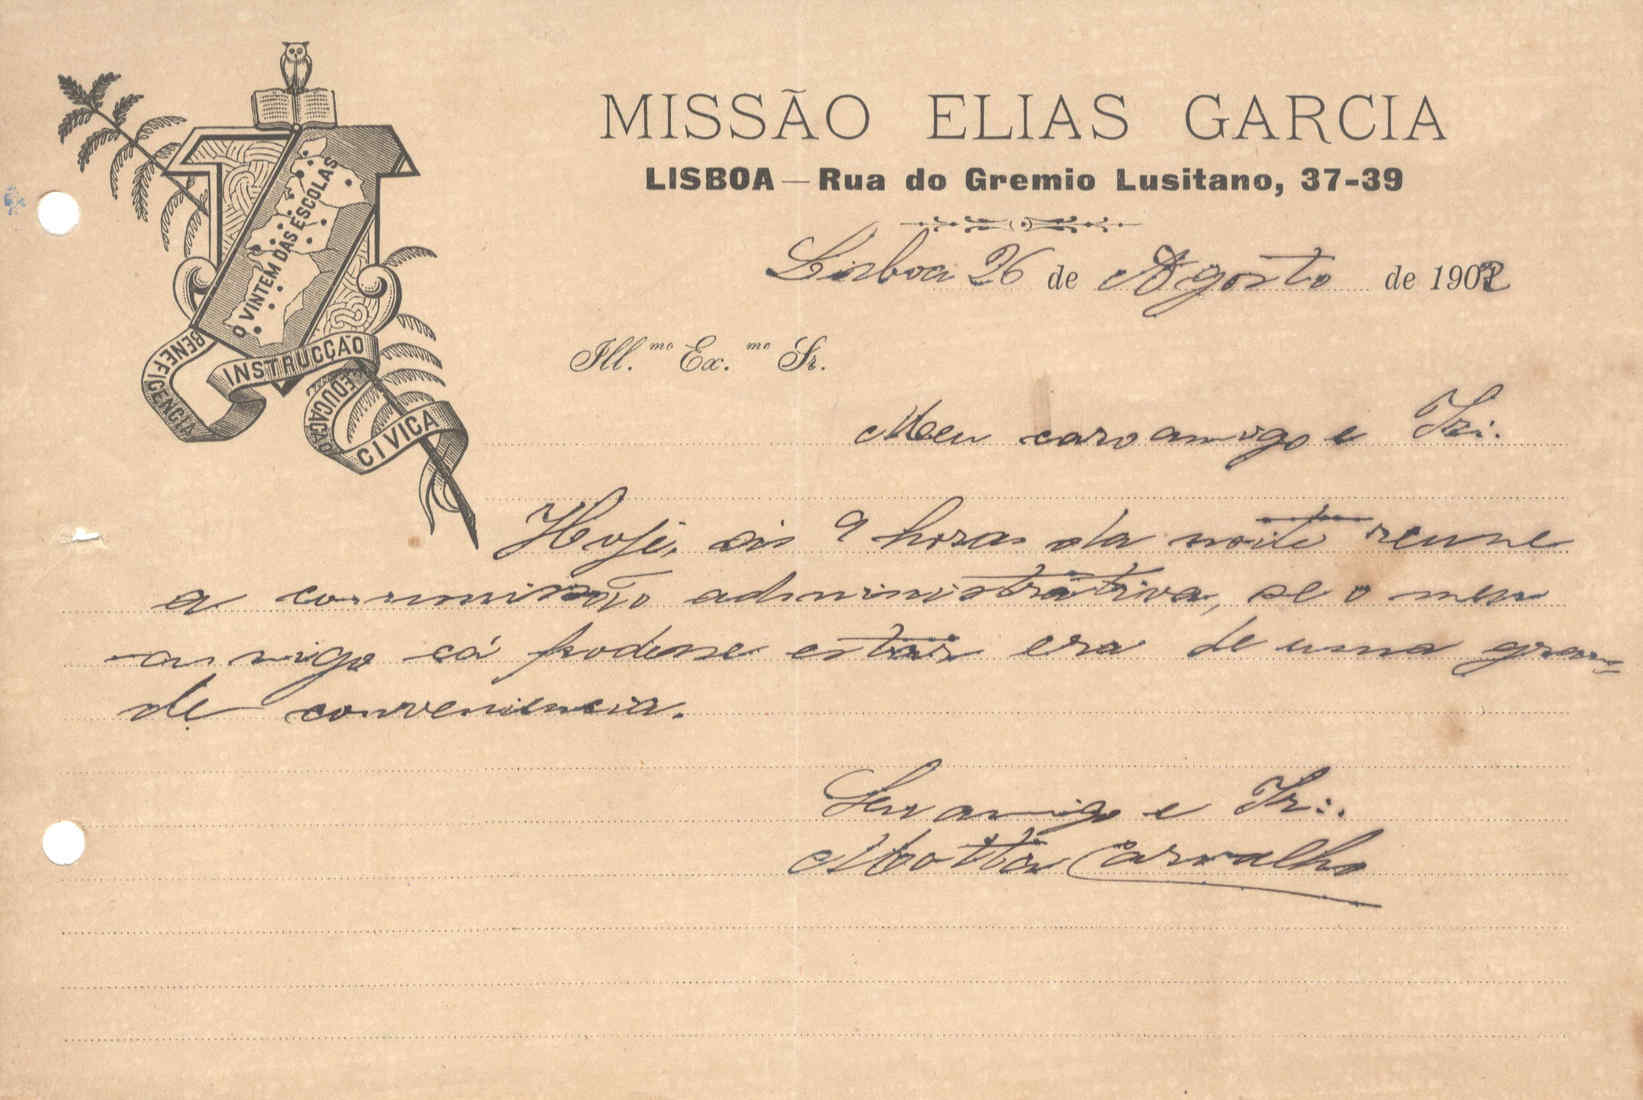 MISSÃO ELIAS GARCIA
LISBOA — Rua do Gremio Lusitano, 37-39
Lisboa 26 de Agosto de 1902
Ill.mo Ex.mo Sr.
O VINTEM DAS ESCOLAS
BENEFICENCIA
INSTRUCÇÃO
EDUCAÇÃO
CIVICA
Meu caro amigo e Ir∴
Hoje, ás 9 horas da noite reune
a commissão administrativa, se o meu
amigo cá podesse estar era de uma gran-
de conveniencia.
Seu amigo e Ir∴
Motta Carvalho